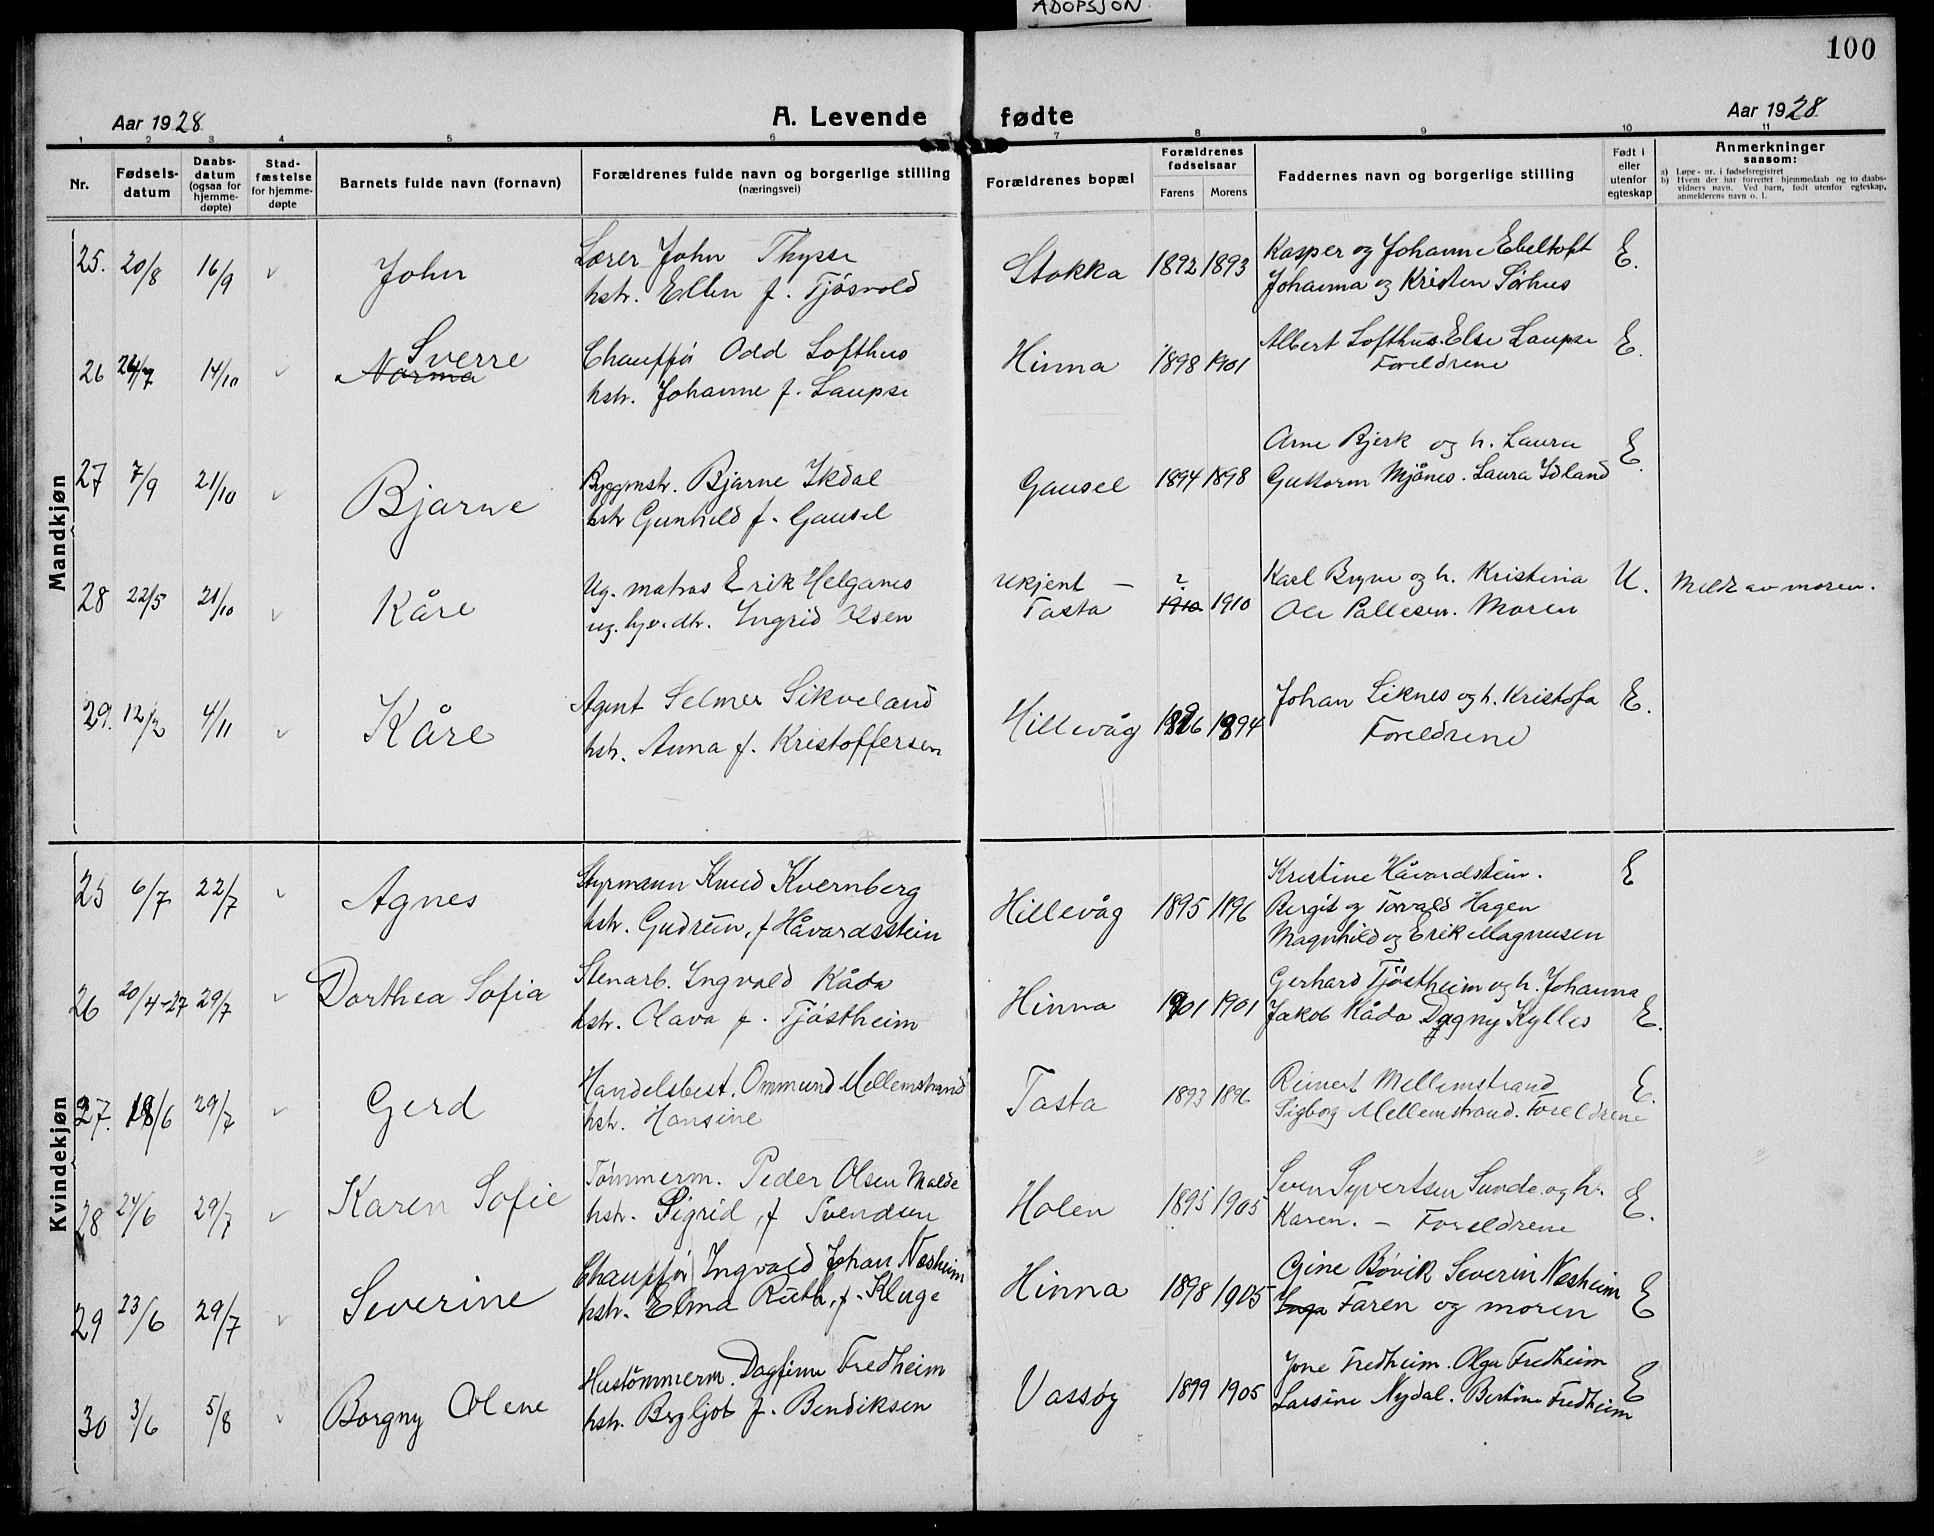 ADOPSJON.
100
Aar 1928 A. Levende fødte Aar 1928
1 2 3 4 5 6 7 8 9 10 11
Nr. Fødsels-datum Daabs-datum (ogsaa for hjemme-døpte) Stad-fæstelse for hjemme-døpte Barnets fulde navn (fornavn) Forældrenes fulde navn og borgerlige stilling (næringsvei) Forældrenes bopæl Forældrenes fødselsaar Farens Morens Faddernes navn og borgerlige stilling Født i eller utenfor egteskap Anmerkninger saasom:
a) Løpe-nr. i fødselsregistret
b) Hvem der har forrettet hjemmedaab og to daabsvidners navn. Ved barn, født utenfor egteskap, anmelderens navn o. l.
Mandkjøn
25. 20/8 16/9 ✓ John Lærer John Thysse Stokka 1892 1893 Kasper og Johanne Ebeltoft E.
hstr. Ellen f. Tjøsvold Johanna og Kristen Sørhus
26 24/7 14/10 ✓ Norma Sverre Chauffør Odd Lofthus Hinna 1898 1901 Albert Lofthus. Else Laupse E.
hstr. Johanne f. Laupse Foreldrene
27 7/9 21/10 ✓ Bjarne Byggmstr. Bjarne Ikdal Gausel 1894 1898 Arne Bjerk og h. Laura E.
hstr Gunhild f. Gausel Guttorm Mjånes. Laura Idland
28 22/5 21/10 ✓ Kåre Ug. matros Erik Helganes ukjent — ? Karl Bryne og h. Kristina U. Meldt av moren.
ug. hjv. dtr. Ingrid Olsen Tasta 1910 1910 Ole Pallesen. Moren
29. 12/2 4/11 ✓ Kåre Agent Selmer Sikveland Hillevåg 1896 1894 Johan Siknes og h. Kristofa E.
hstr. Anna f. Kristoffersen Foreldrene
Kvindekjøn
25 6/7 22/7 ✓ Agnes Styrmann Knud Kvernberg Hillevåg 1895 1896 Kristine Håvardstein. E
hstr. Gudrun, f Håvardsstein Bergit og Torvald Hagen
Magnhild og Erik Magnusen
26 20/4-27 29/7 ✓ Dorthea Sofia Stenarb. Ingvald Kåda Hinna 1901 1901 Gerhard Tjøstheim og h. Johanna
hstr. Olava f. Tjøstheim Jakob Kåda Dagny Kylles E.
27. 18/6 29/7 ✓ Gerd Handelsbest. Ommund Mellemstrand Tasta 1893 1896 Reinert Mellemstrand E.
hstr. Hansine Sigborg Mellemstrand. Foreldrene
28 24/6 29/7 ✓ Karen Sofie Tømmerm. Peder Olsen Malde Holen 1895 1905 Sven Syvertsen Sunde og h. E.
hstr. Sigrid, f Svendsen Karen. — Foreldrene
29 23/6 29/7 ✓ Severine Chauffør Ingvald Johan Næsheim Hinna 1898 1905 Gine Bøvik Severin Næsheim E
hstr. Elma Ruth, f. Kluge Inga Faren og moren
30 3/6 5/8 ✓ Borgny Olene Hustømmerm. Dagfinn Fredheim Vassøy 1899 1905 Jone Fredheim. Olga Fredheim E
hstr. Bergljot f. Bendiksen Larsine Nydal. Bertine Fredheim